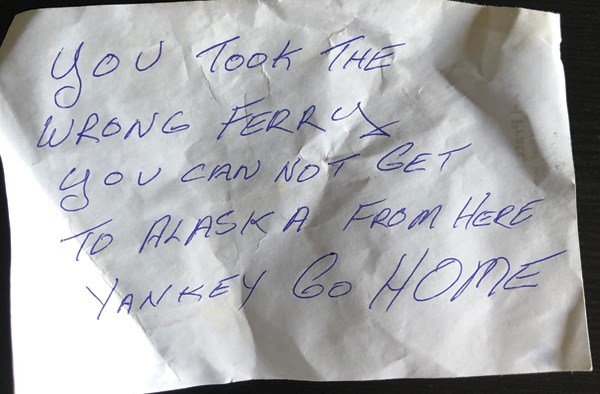 YOU TOOK THE
WRONG FERRY
YOU CAN NOT GET
TO ALASKA FROM HERE
YANKEY GO HOME